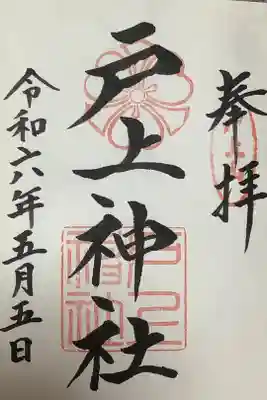 奉拝
戸上神社
令和六年五月五日